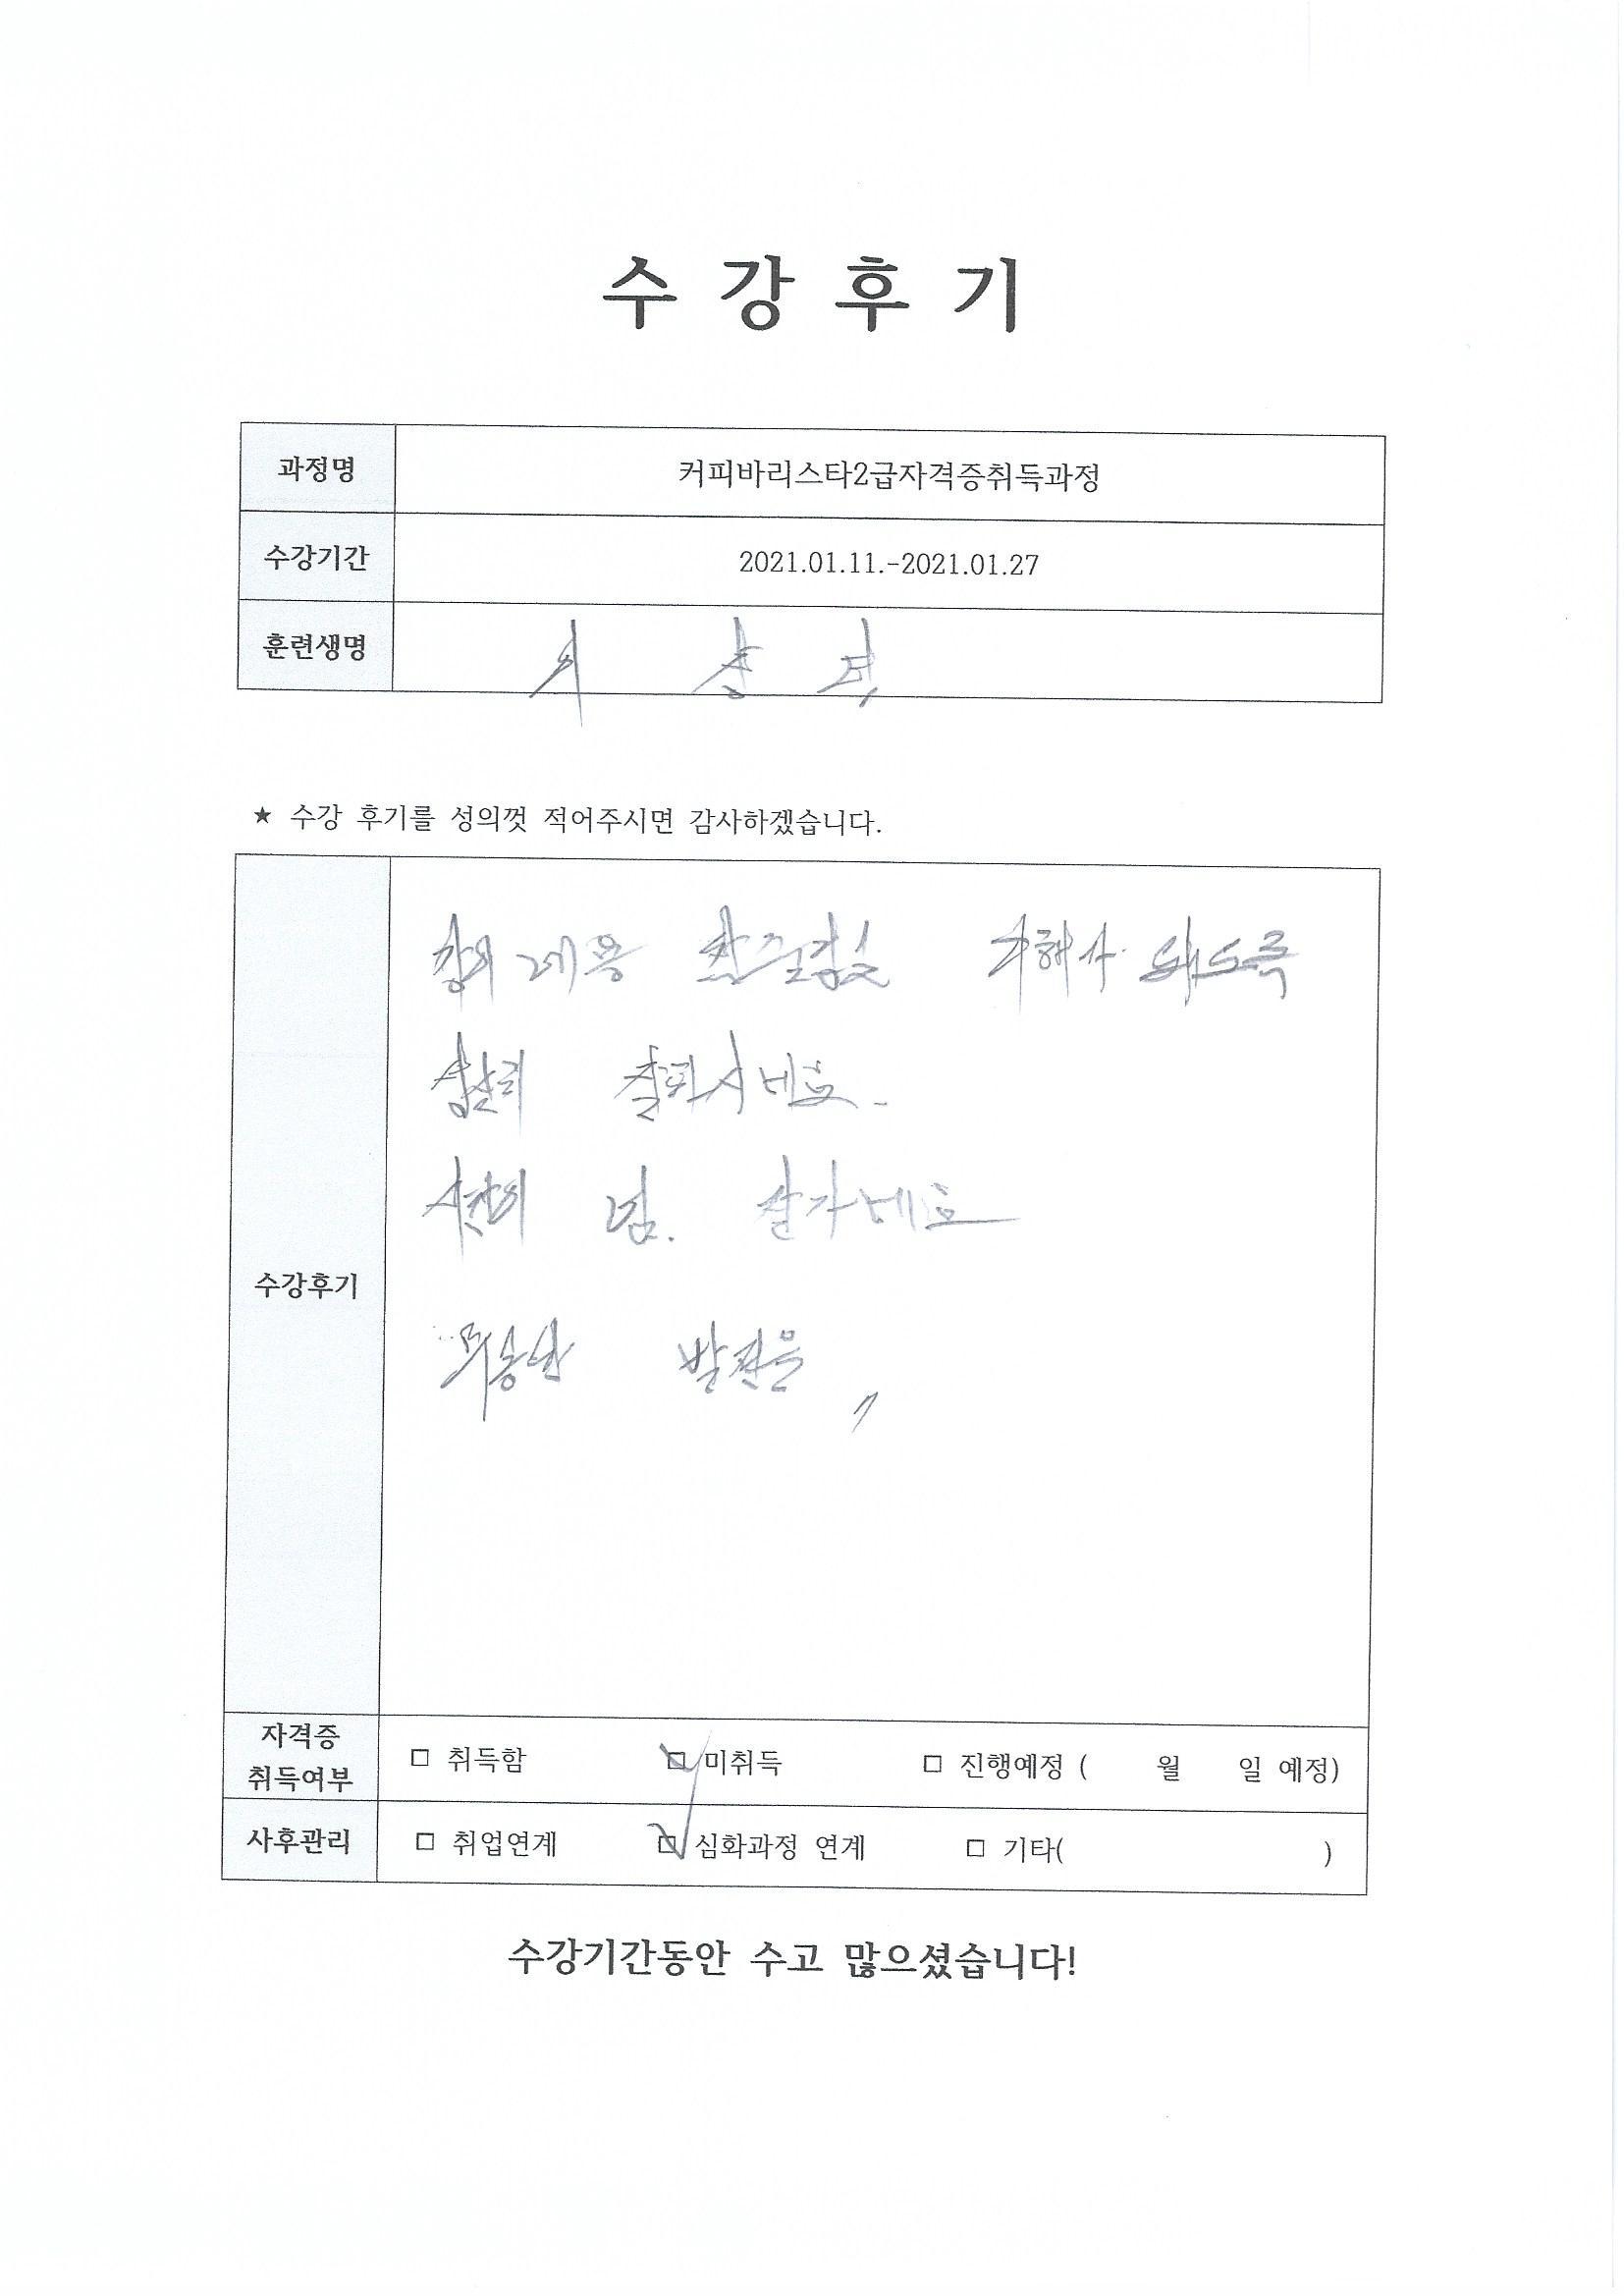 수 강 후 기
과정명 커피바리스타2급자격증취득과정
수강기간 2021.01.11.-2021.01.27
훈련생명
★ 수강 후기를 성의껏 적어주시면 감사하겠습니다.
수강후기
강의 내용
시간이 넘. 잘가네요
무궁한 발전을
자격증 취득여부 □ 취득함 □ 미취득 □ 진행예정 ( 월 일 예정)
사후관리 □ 취업연계 □ 심화과정 연계 □ 기타( )
수강기간동안 수고 많으셨습니다!